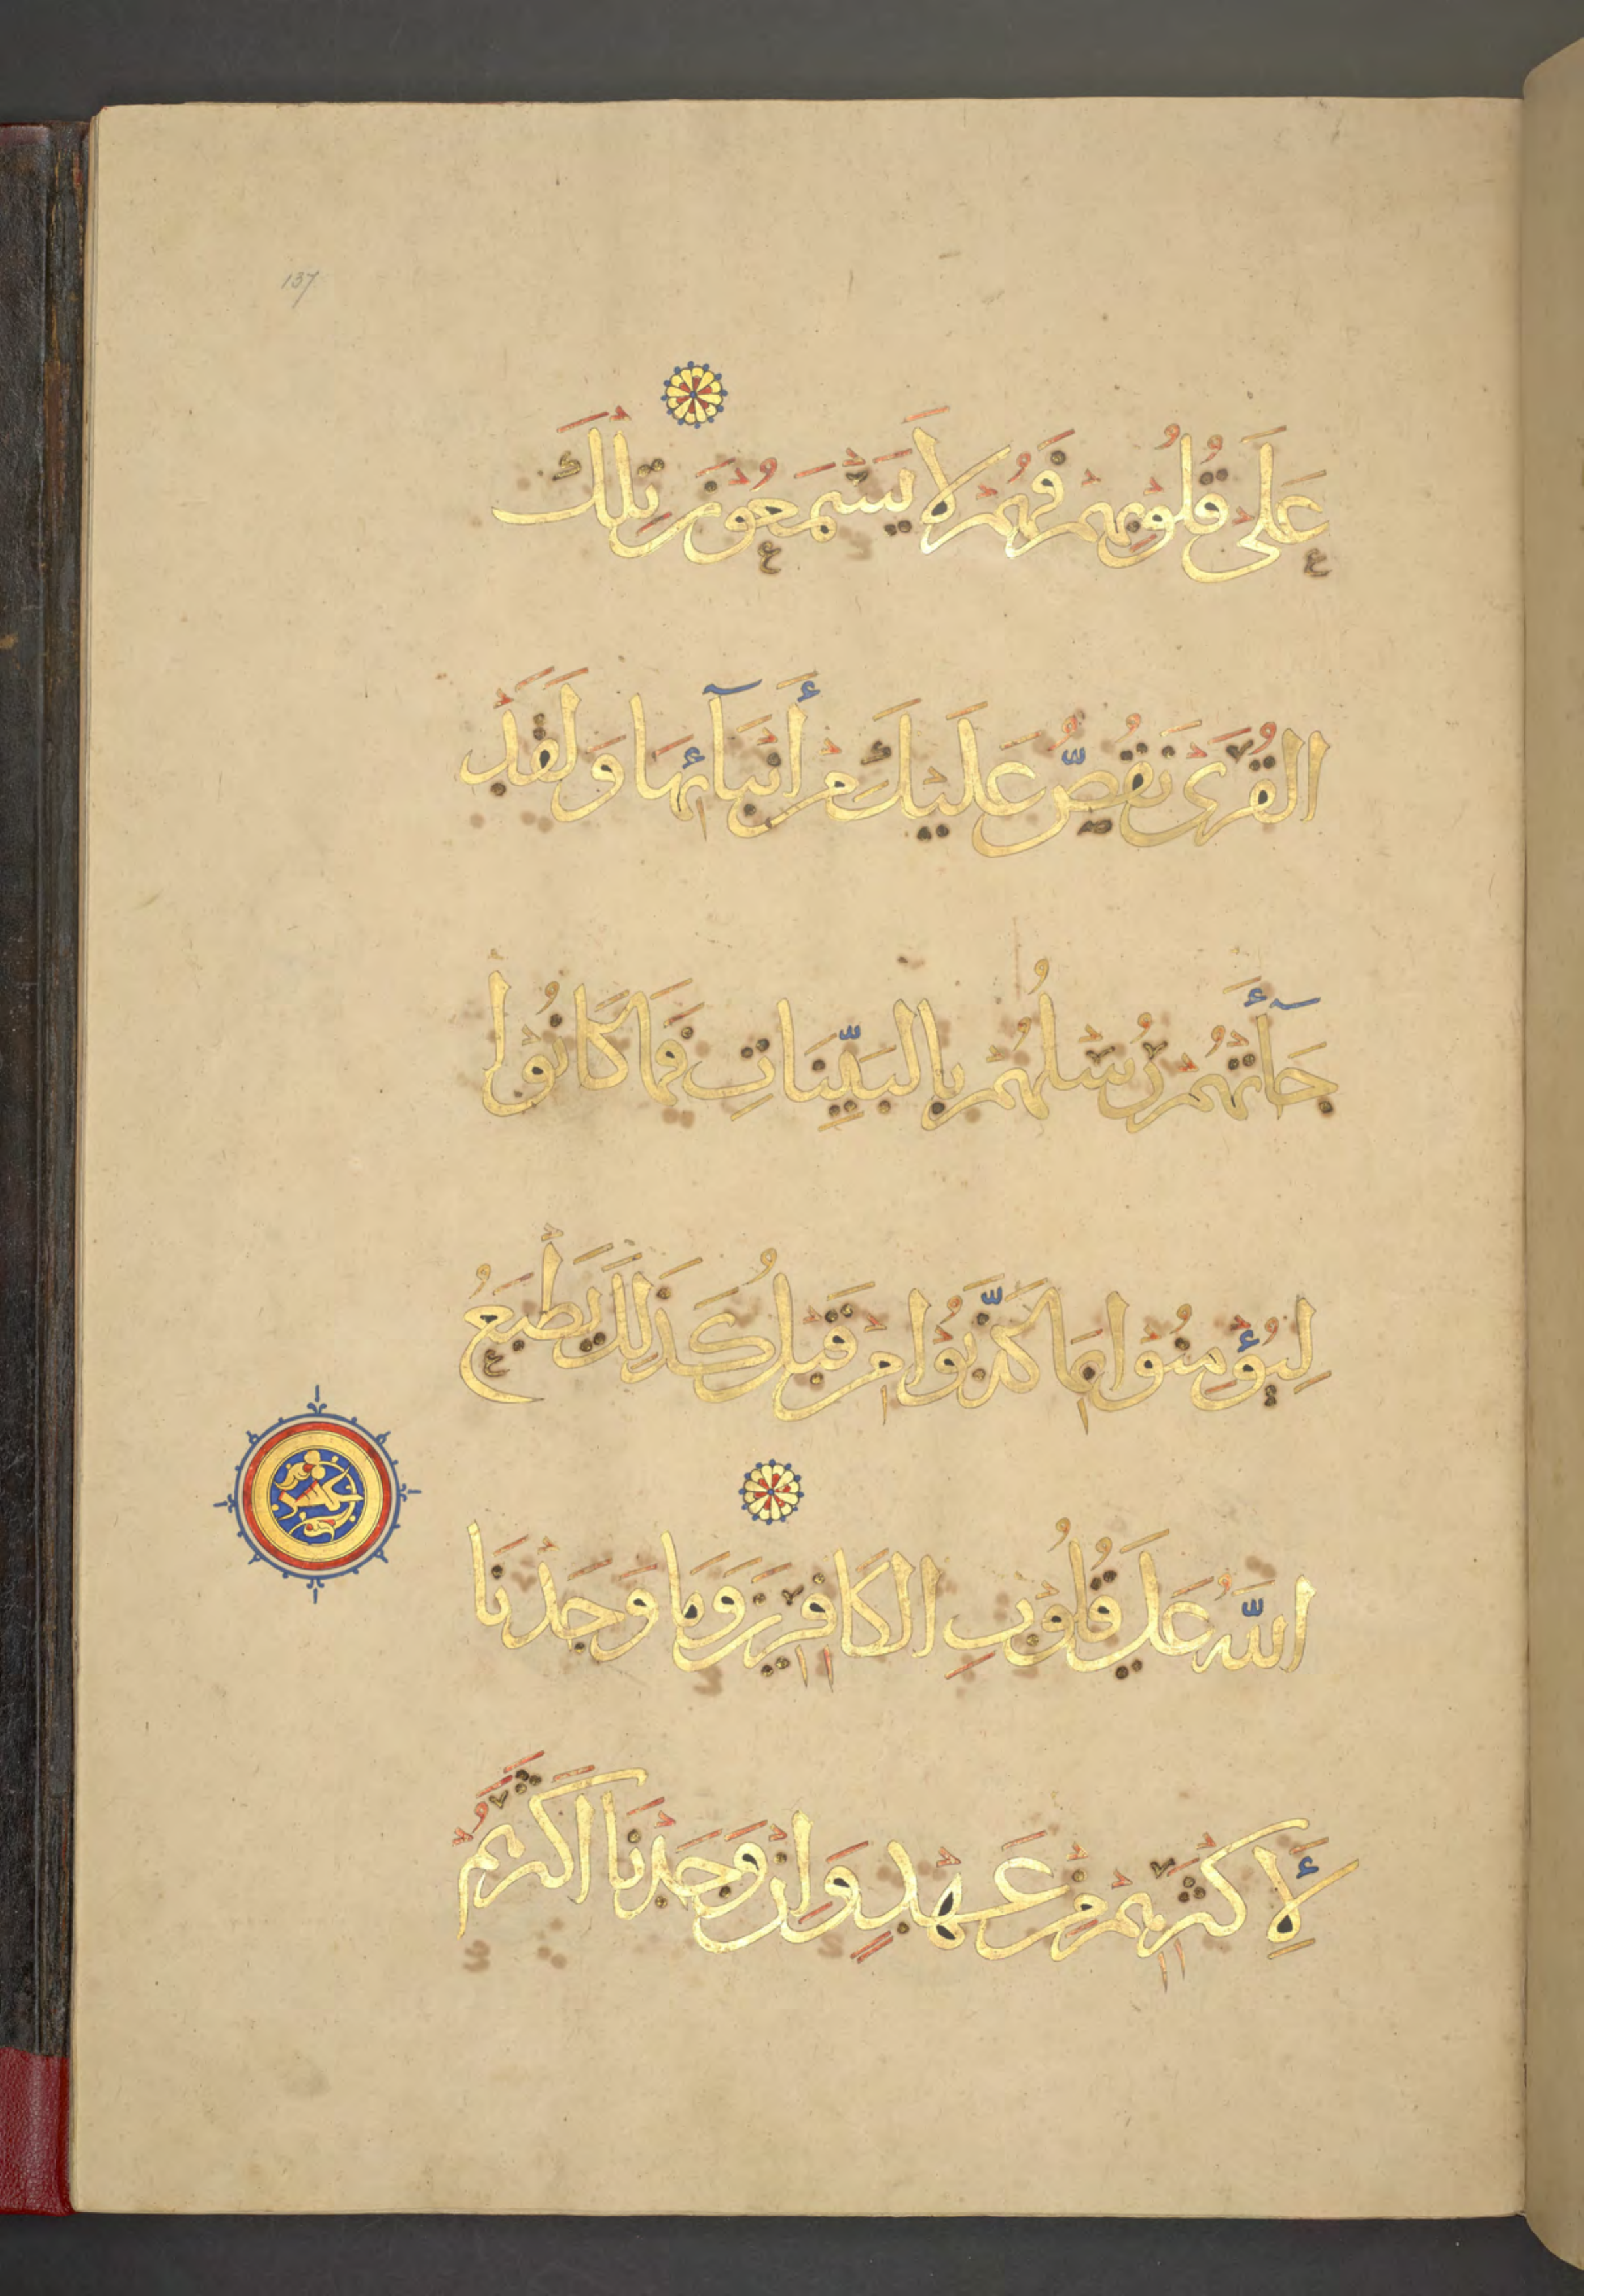 137
عَلَى قُلُوبِهِمْ فَهُمْ لَا يَسْمَعُونَ تِلْكَ
الْقُرَى نَقُصُّ عَلَيْكَ مِنْ أَنْبَآئِهَا وَلَقَدْ
جَآءَتْهُمْ رُسُلُهُمْ بِالْبَيِّنَاتِ فَمَا كَانُوا
لِيُؤْمِنُوا بِمَا كَذَّبُوا مِنْ قَبْلُ كَذَلِكَ يَطْبَعُ
اللَّهُ عَلَى قُلُوبِ الْكَافِرِينَ وَمَا وَجَدْنَا
لِأَكْثَرِهِمْ مِنْ عَهْدٍ وَإِنْ وَجَدْنَا أَكْثَرَهُمْ